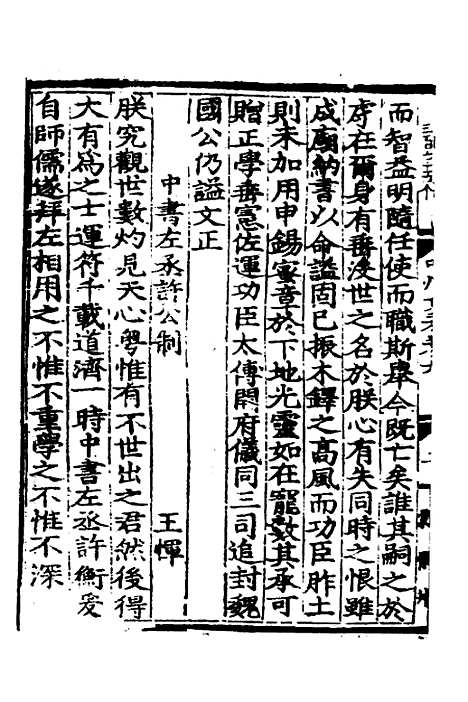 而智益明隨任使而職斯舉今既亡矣誰其嗣之於
虖在爾身有垂没世之名於朕心有失同時之恨雖
成廟納書以命謚固已振木鐸之高風而功臣胙土
則未加用申錫宻章於下地光靈如在寵數其承可
贈正學垂憲佐運功臣太傅開府儀同三司追封魏
國公仍謚文正
中書左丞許公制 王惲
朕究觀世數灼見天心粤惟有不世出之君然後得
大有為之士運符千載道濟一時中書左丞許衡爰
自師儒遂拜左相用之不惟不重學之不惟不深